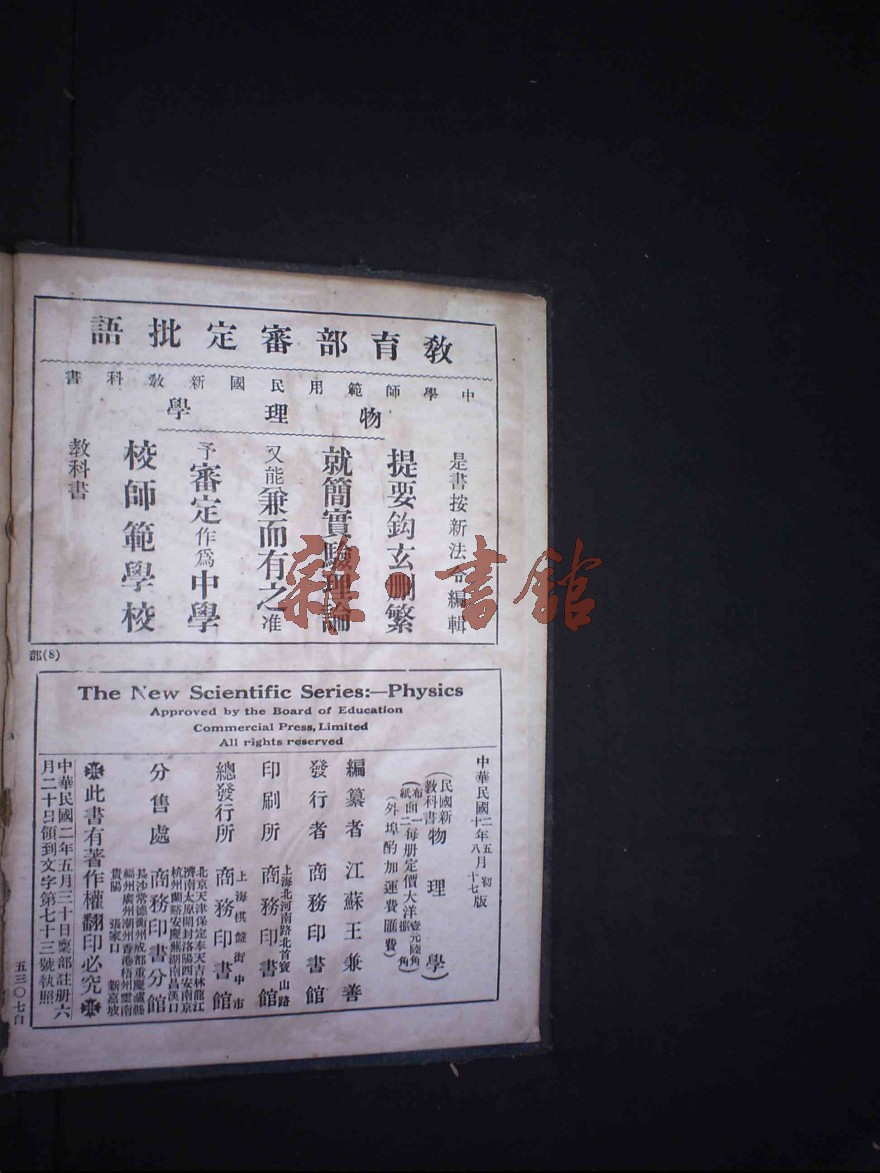 教育部審定批語
中學師範用民國新教科書
物理學
是書按新法令編輯
提要鈎玄刪繁
就簡實驗理論
又能兼而有之准
予審定作爲中學
校師範學校
教科書
部(8)
The New Scientific Series:—Physics
Approved by the Board of Education
Commercial Press, Limited
All rights reserved
中華民國二年五月初版
十二年八月十七版
(民國新教科書)物理學
(布面一每册定價大洋壹元陸角)
(外埠酌加運費匯費)
編纂者 江蘇王兼善
發行者 商務印書館
上海北河南路北首寶山路
印刷所 商務印書館
上海棋盤街中市
總發行所 商務印書館
北京天津保定奉天吉林龍江
濟南太原開封洛陽西安南京
杭州蘭谿安慶蕪湖南昌漢口
分售處 商務印書分館
長沙常德衡州成都重慶瀘縣
福州廣州潮州香港梧州雲南
貴陽 張家口 新嘉坡
此書有著作權翻印必究
中華民國二年五月三十日稟部註册六
月二十日領到文字第七十三號執照
五三〇七白
雜·書館